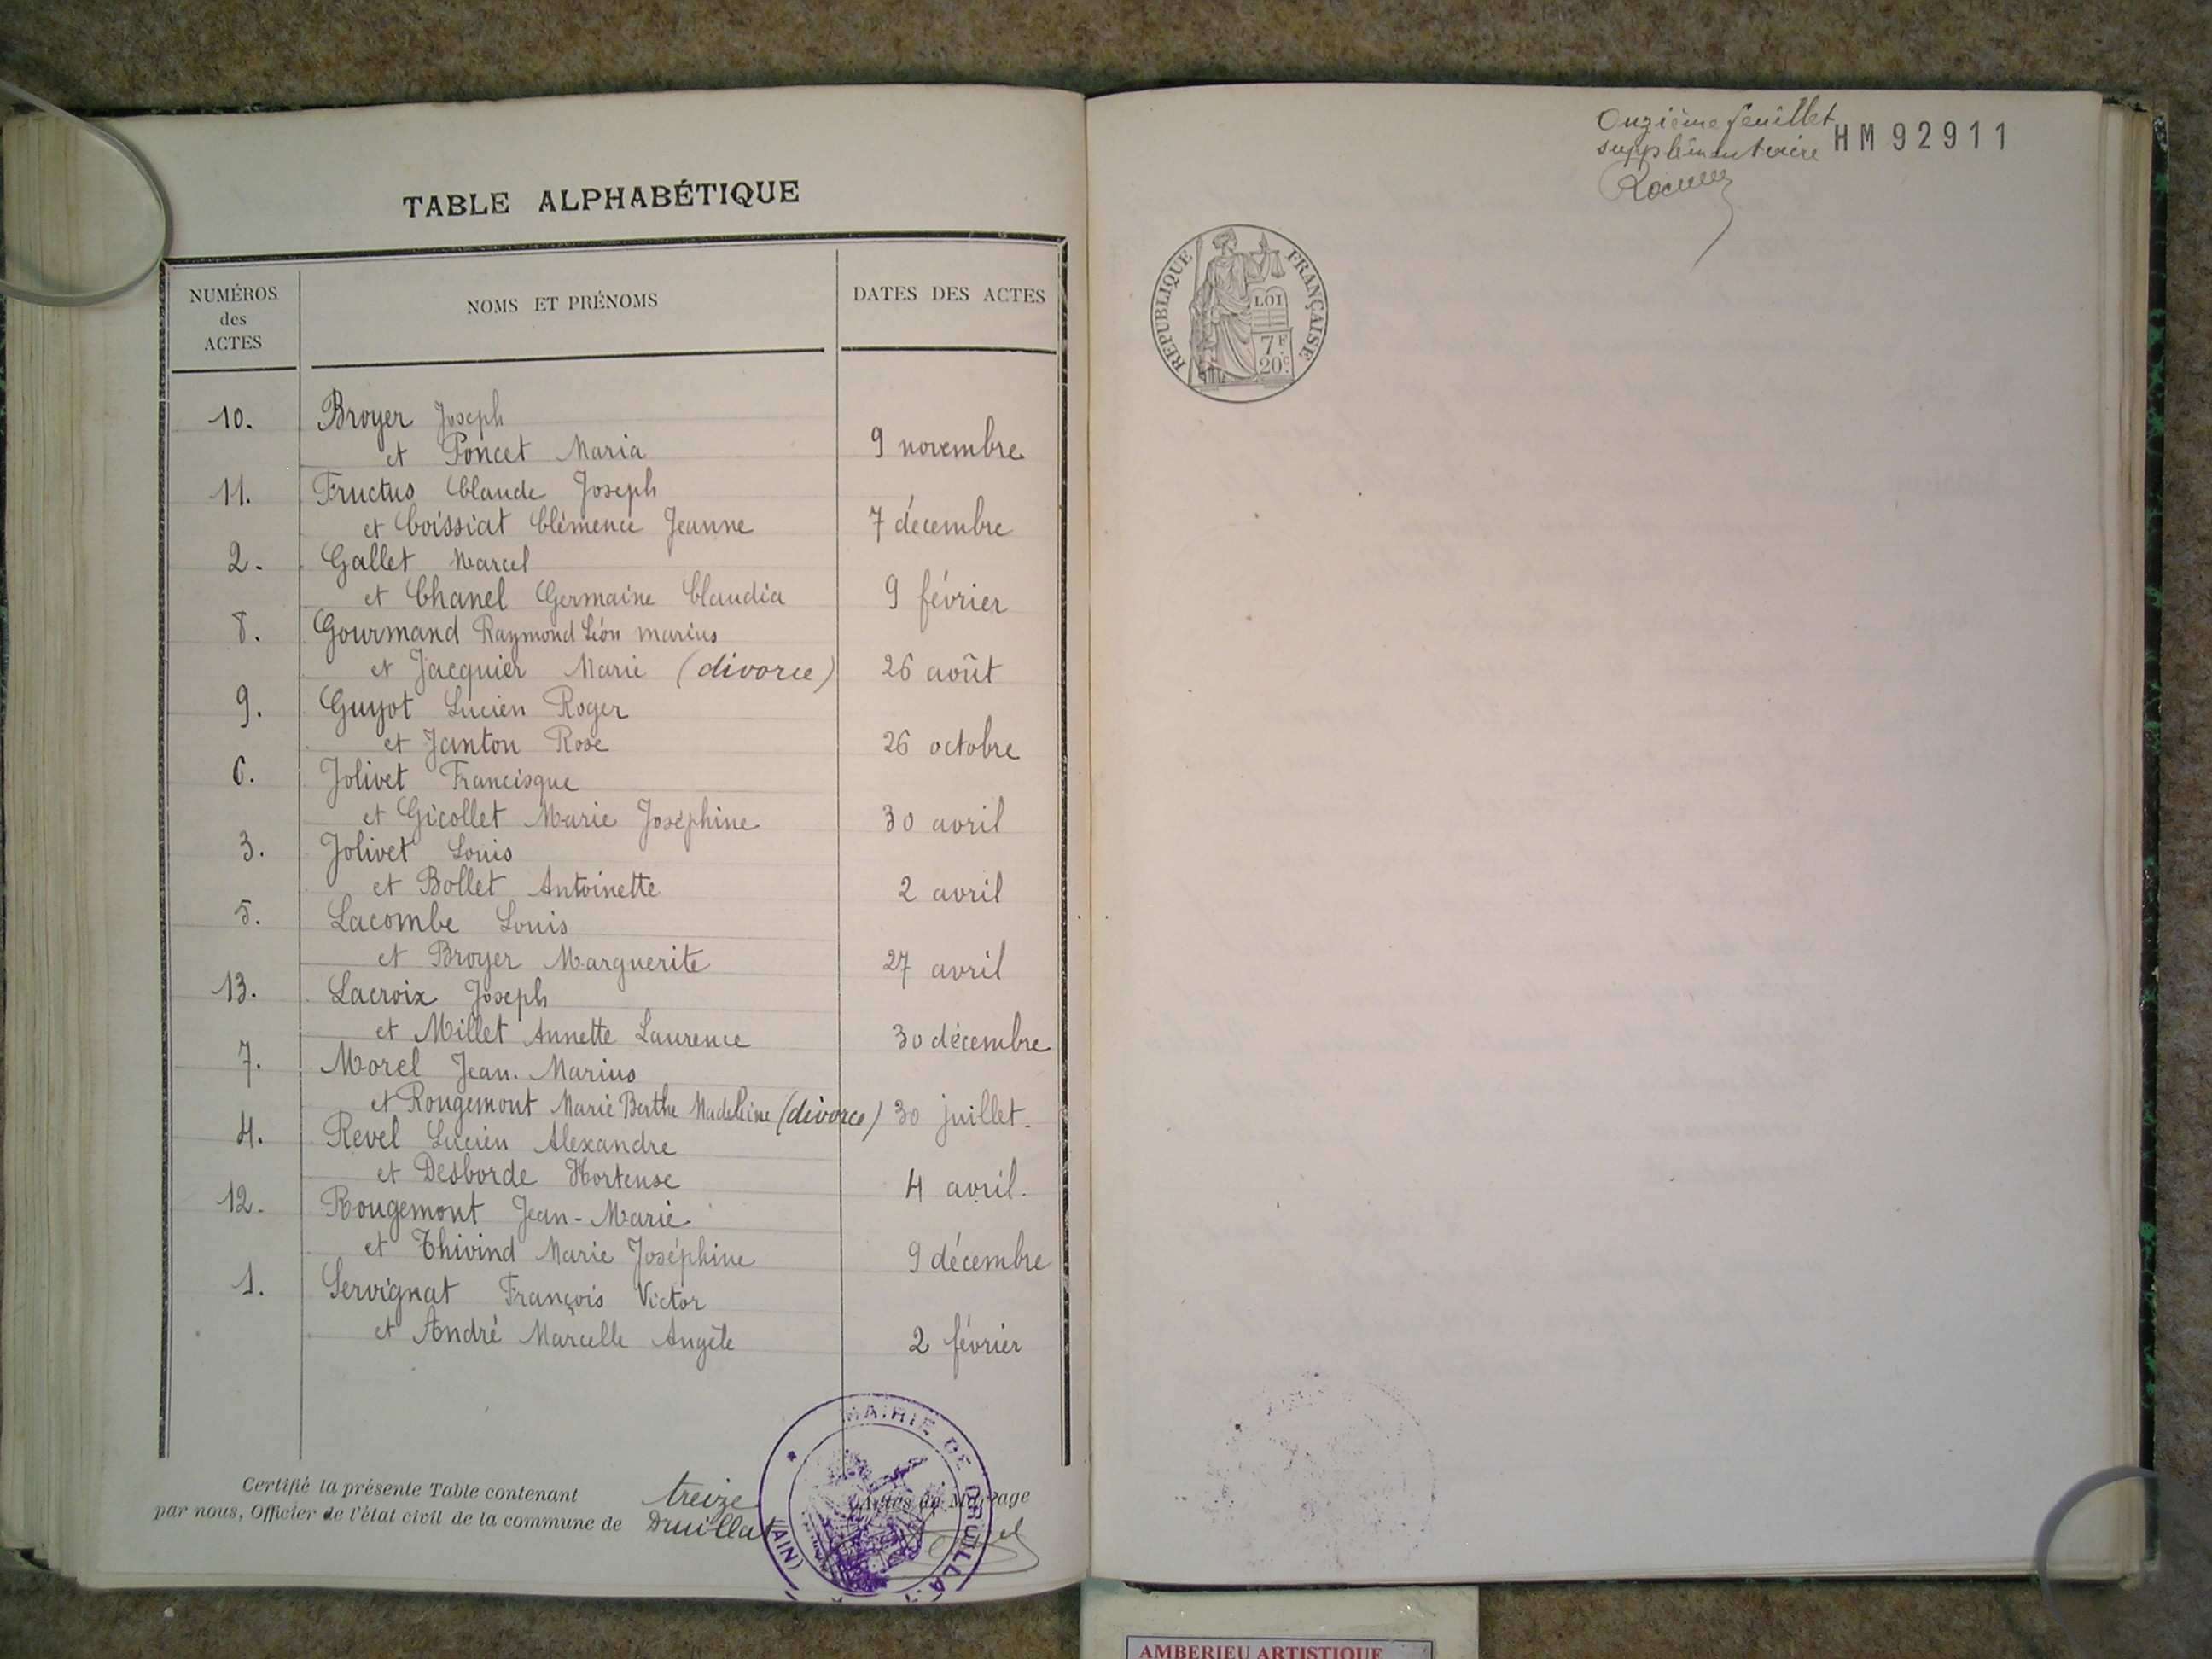 TABLE ALPHABÉTIQUE
NUMÉROS des ACTES
NOMS ET PRÉNOMS
DATES DES ACTES
10. Broyer Joseph
et Poncet Maria 9 novembre
11. Fructus Claude Joseph
et Coissiat Clémence Jeanne 7 décembre
2. Gallet Marcel
et Chanel Germaine Claudia 9 février
8. Gourmand Raymond Léon Marius
et Jacquier Marie (divorce) 26 août
9. Guyot Lucien Roger
et Janton Rose 26 octobre
6. Jolivet Francisque
et Gicollet Marie Joséphine 30 avril
3. Jolivet Louis
et Bollet Antoinette 2 avril
5. Lacombe Louis
et Broyer Marguerite 27 avril
13. Lacroix Joseph
et Millet Annette Laurence 30 décembre
7. Morel Jean-Marius
et Rougemont Marie Berthe Madeleine (divorce) 30 juillet.
4. Revel Lucien Alexandre
et Desborde Hortense 4 avril.
12. Rougemont Jean-Marie
et Thivind Marie Joséphine 9 décembre
1. Servignat François Victor
et André Marcelle Angèle 2 février
Certifié la présente Table contenant treize Actes de Mariage
par nous, Officier de l'état civil de la commune de Druillat
MAIRIE DE DRUILLAT
(AIN)
Onzième feuillet
supplémentaire
HM92911
RÉPUBLIQUE FRANÇAISE
LOI
7F
20c
AMBERIEU ARTISTIQUE